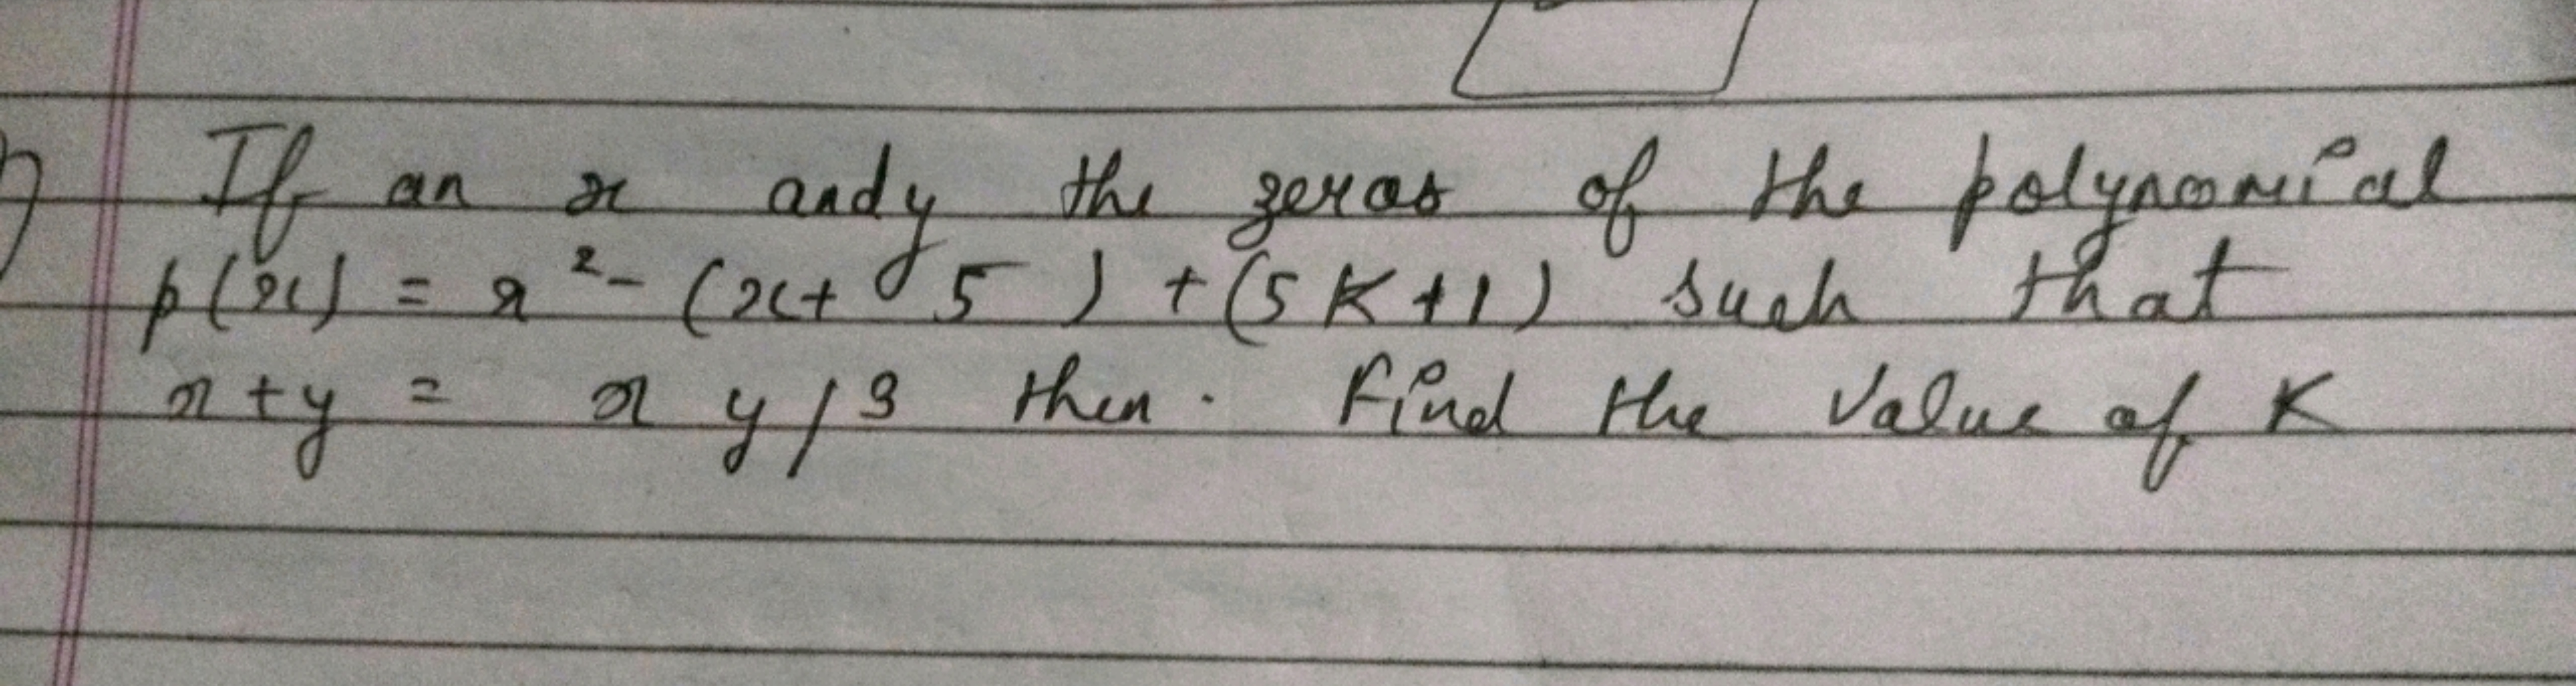 If an x and y the zeros of the polynomial
p(x) = x² - (x + 5) + (5K+1) such that
x + y = x y / 3 then. Find the value of K